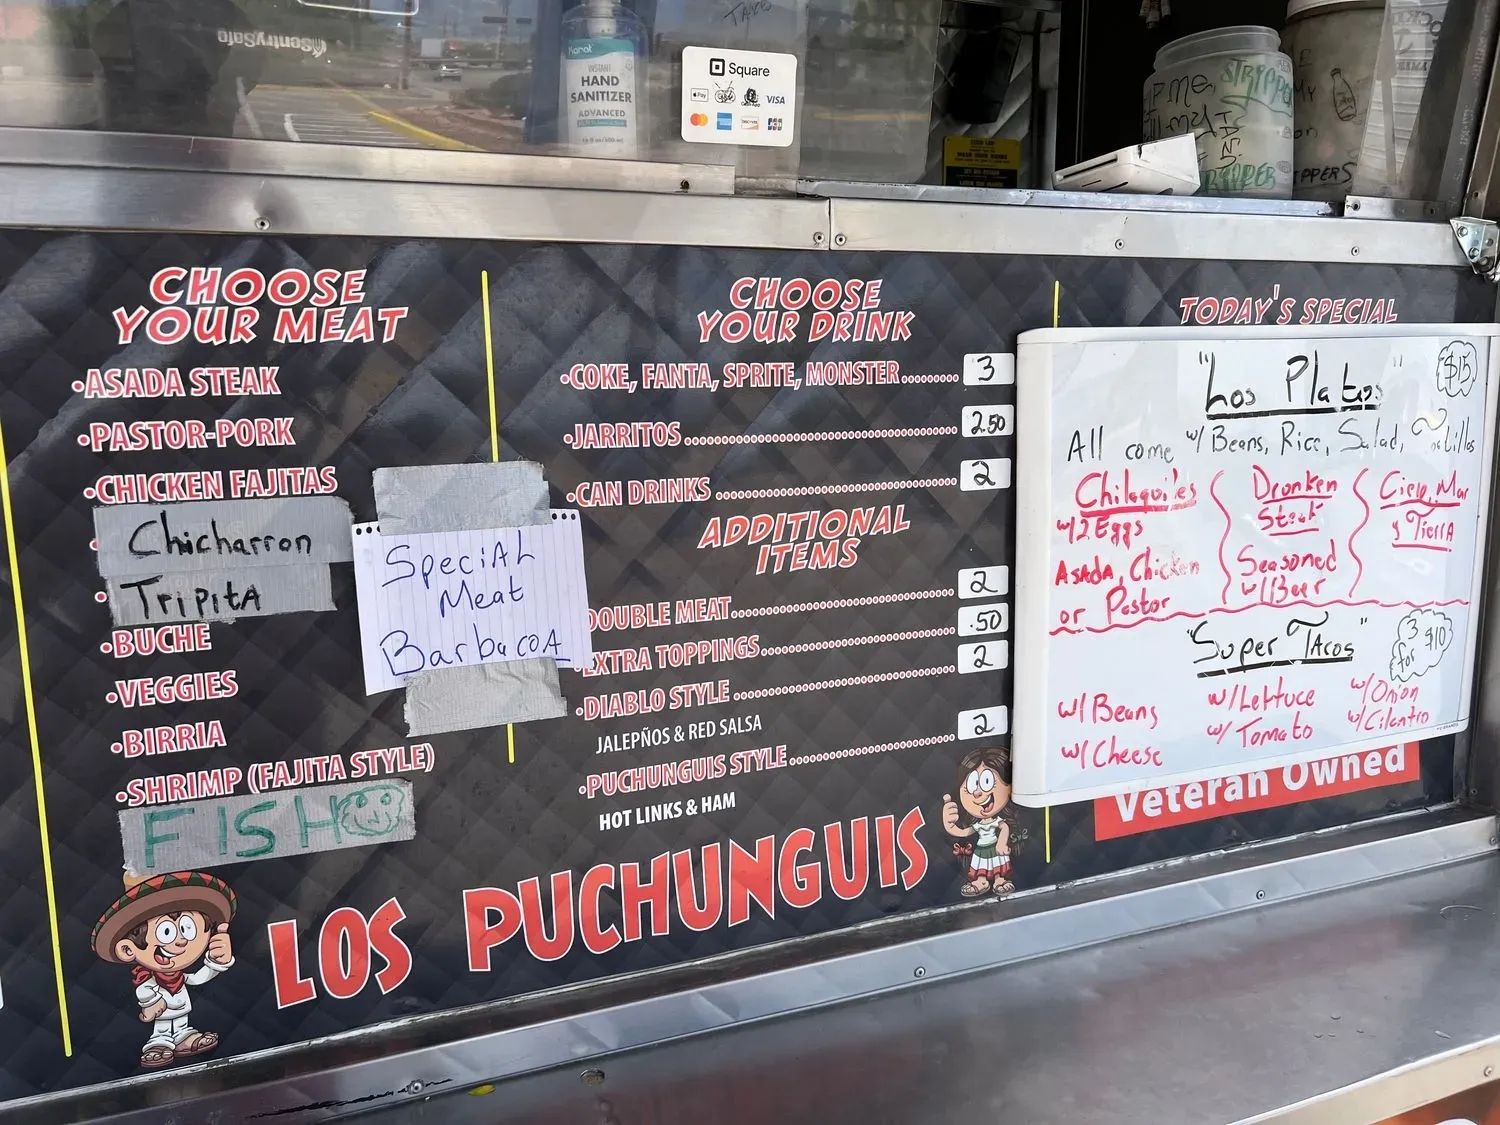 SentrySafe
Karat
INSTANT
HAND
SANITIZER
ADVANCED
Square
Pay
VISA
DISCOVER
JCB
STRIPPER
CHOOSE
YOUR MEAT
•ASADA STEAK
•PASTOR-PORK
•CHICKEN FAJITAS
Chicharron
TripitA
•BUCHE
•VEGGIES
•BIRRIA
•SHRIMP (FAJITA STYLE)
FISH
SpeciAL
Meat
BarbacOA
CHOOSE
YOUR DRINK
•COKE, FANTA, SPRITE, MONSTER......... 3
•JARRITOS 2.50
•CAN DRINKS 2
ADDITIONAL
ITEMS
DOUBLE MEAT 2
•EXTRA TOPPINGS .50
•DIABLO STYLE 2
JALEPÑOS & RED SALSA
•PUCHUNGUIS STYLE 2
HOT LINKS & HAM
LOS PUCHUNGUIS
TODAY'S SPECIAL
"Los Platos" $15
All come w/ Beans, Rice, Salad,
Chilaquiles
w/2 Eggs
ASADA, Chicken
or Pastor
Drunken
Steak
Seasoned
w/Beer
Cielo, Mar
y TierrA
"Super TAcos" 3 for $10
w/Beans
w/Cheese
w/Lettuce
w/Tomato
w/Onion
w/Cilantro
Veteran Owned